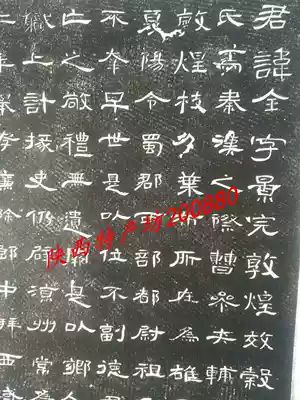 君諱全字景完敦煌效穀
氏焉秦漢之際曹參夾輔
敦煌枝分葉布所在為雄
夏陽令蜀郡西部都尉祖
不幸早世是以位不副德君
亡之敬禮無遺闕是以鄉
職上計掾史仍辟涼州常為
二年舉孝廉除郎中拜西
陕西特产坊200880